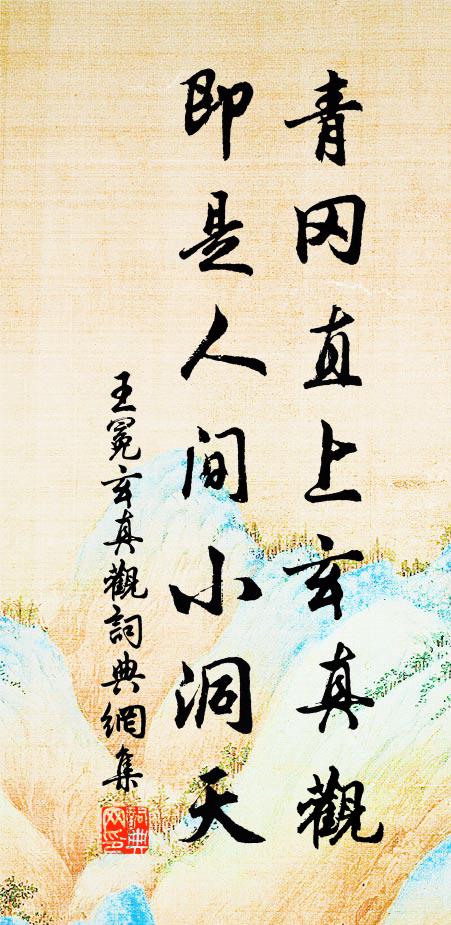 青冈直上玄真觀
即是人间小洞天
王冕玄真觀詞典網集
詞典網印